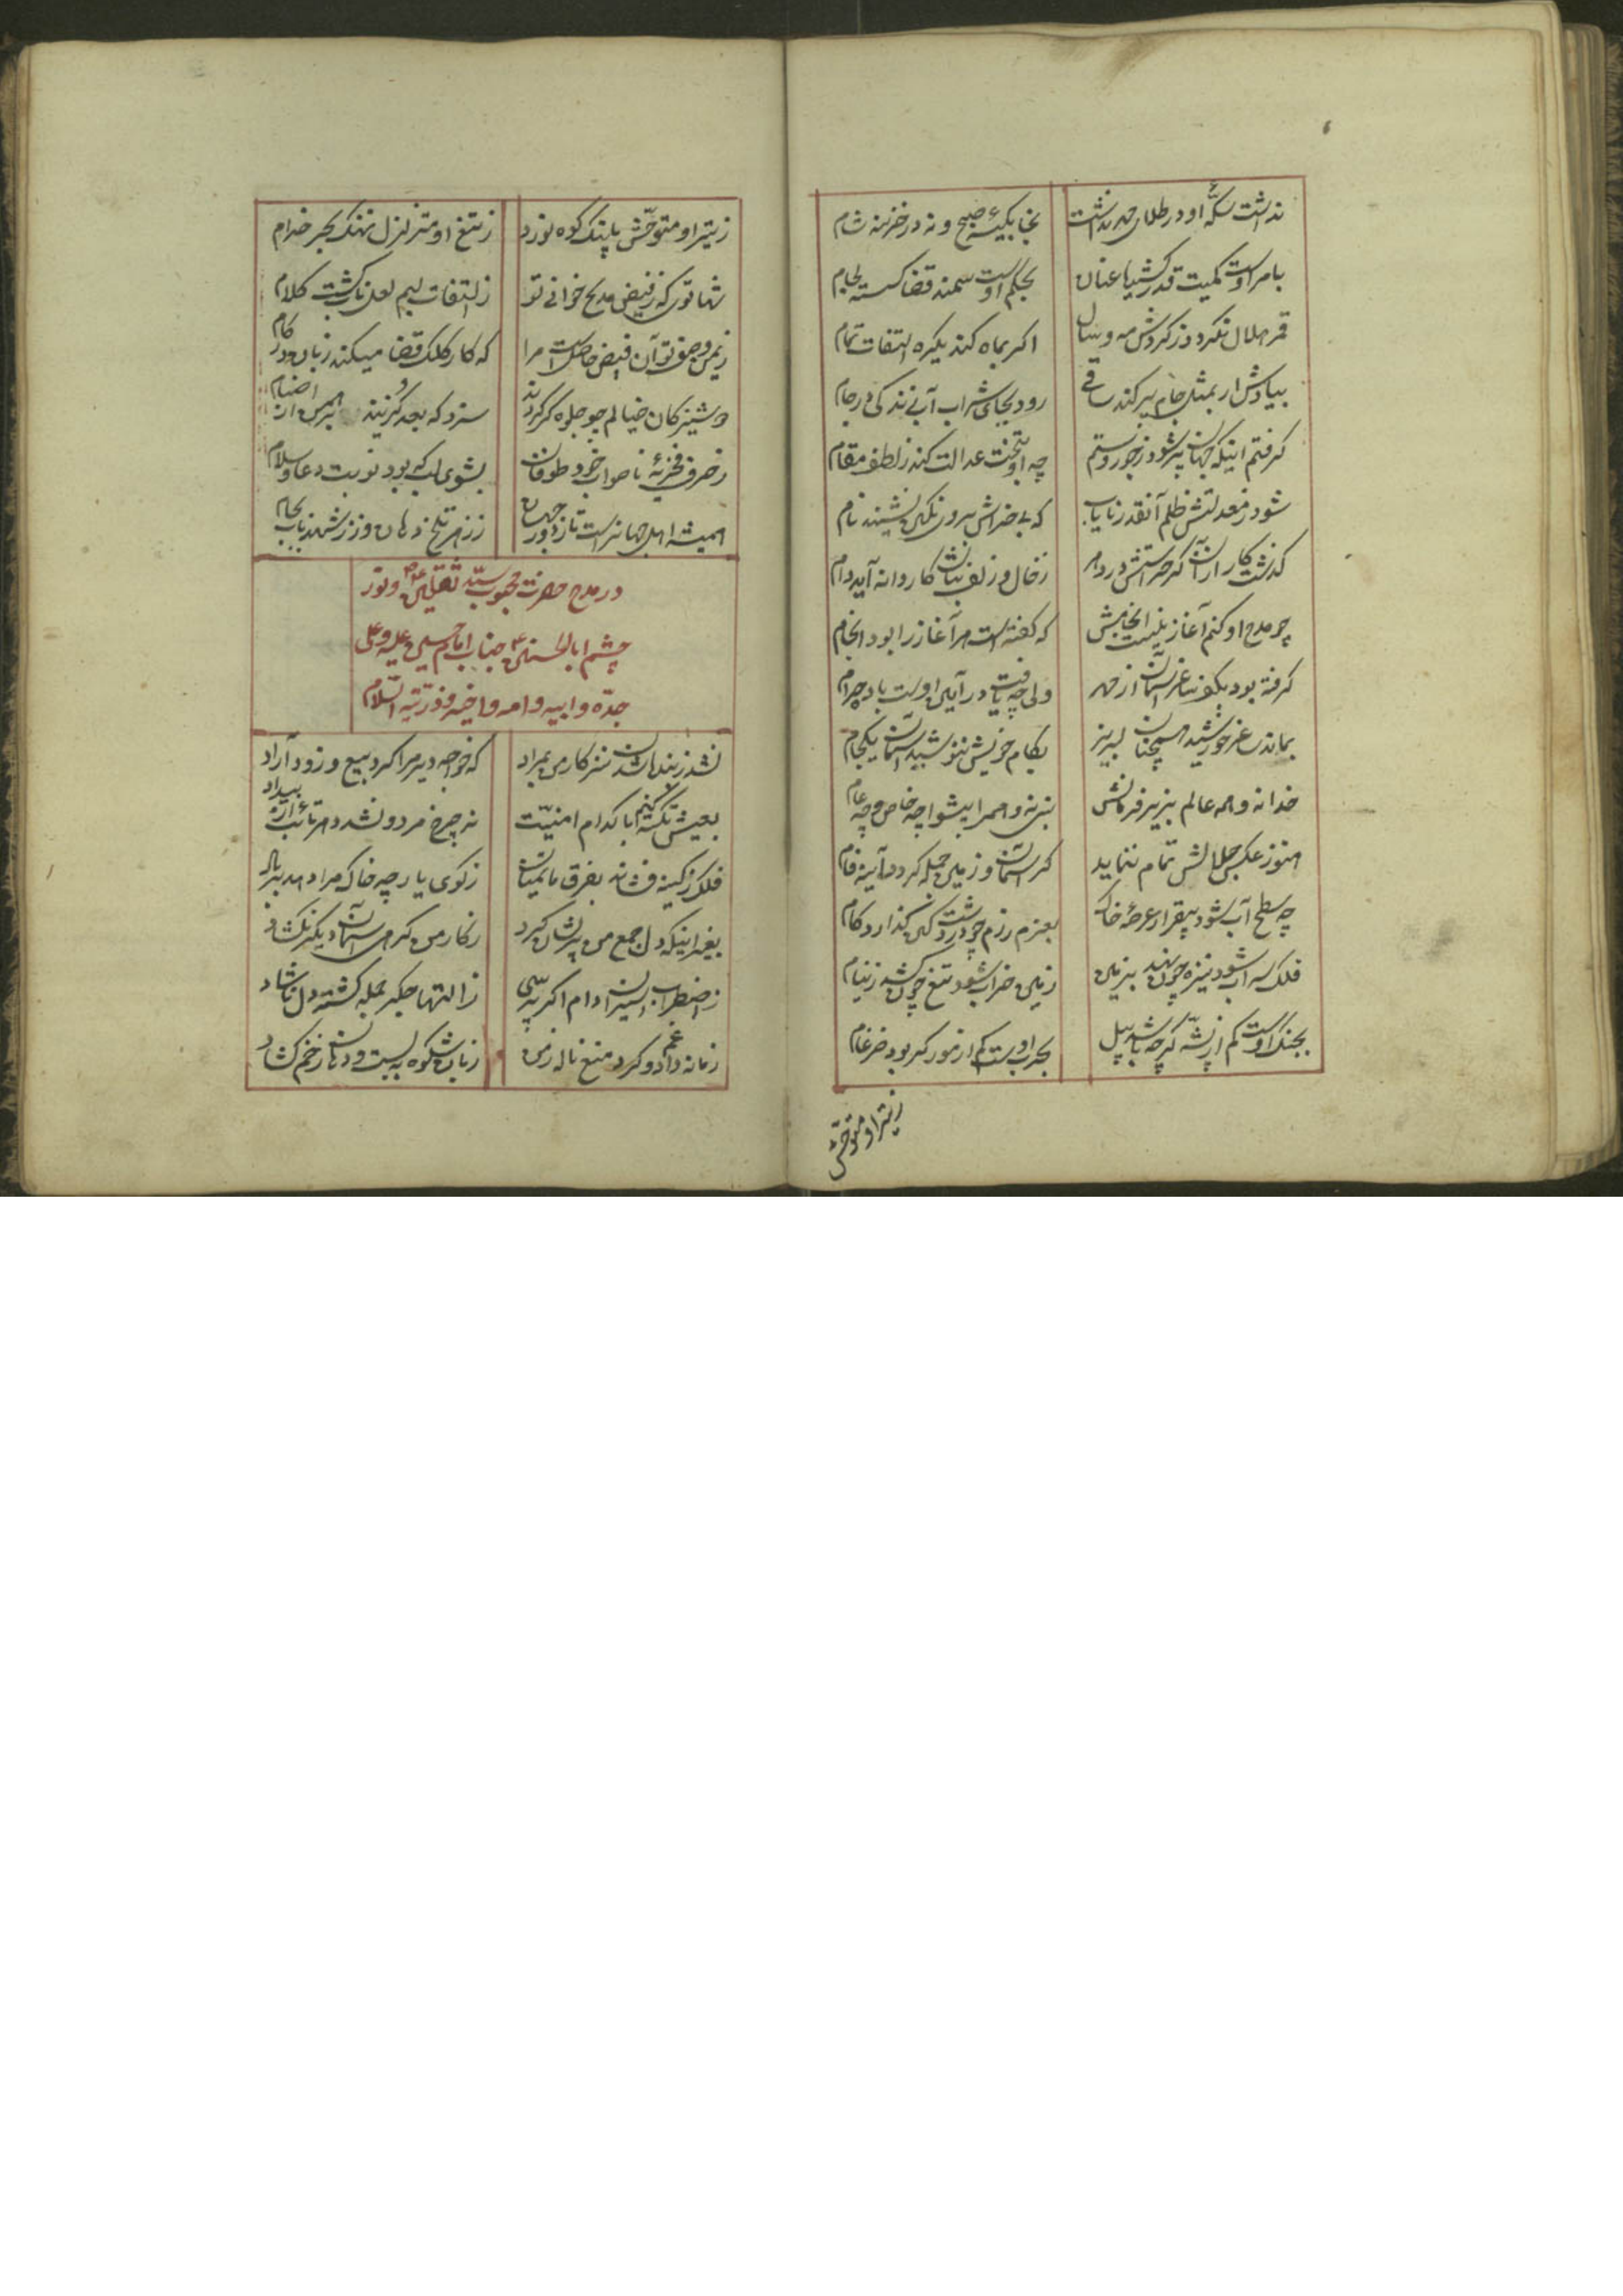 نداشت سکّهٔ او در طلای مهر نداشت بخا بکیسهٔ صبح و نه در خزینه شام
بامر اوست کمیت قدر کشیا عنان بحکم اوست سمند قضا کسسته لجام
قمر هلال نکردد ز کردش مه و سال اکر بماه کند یکره التفات تمام
بیادش ار بمثل جام پر کند ساقی رود بجای شراب آب زندکی در جام
کرفتم اینکه جهان پر شود ز جور و ستم چه او بتخت عدالت کند ز لطف مقام
شود ز معدلتش ظلم آنقدر نایاب که بی خراش برون نکین نشیند نام
کذشت کار از آن کز حراستش در دهر ز خال و زلف بتان کار دانه آید و دام
چو مدح او کنم آغاز نیست انجامش که کفته است هر آغاز را بود انجام
کرفته بود بکف ساغر آسمان از مهر ولی چه یافت در آیین اوست باده حرام
بماند ساغر خورشید همچنان لبریز بکام خویش ننوشید آسمان یکجام
خدا نه و همه عالم بزیر فرمانش نبی نه و همه را پیشوا چه خاص و چه عام
هنوز عکس جلالش تمام ننماید کر آسمان و زمین جمله کردد آینه فام
چه سطح آب شود بیقرار عرصهٔ خاک بعزم رزم چو در دشت کین کذارد کام
فلک سراب شود نیزه چون نهد بزمین زمین خراب شود تیغ چون کشد ز نیام
بجنک اوست کم از پشّه کرچه باشد پیل بحرب اوست کم از مور کر بود ضرغام
ز تیر او متوحّش
ز تیر او متوحّش پلنک کوه نورد ز تیغ او متزلزل نهنک بحر خرام
شها توئی که ز فیض مدیح خوانی تو ز التفات لبم لعل ناب کشت کلام
ز یمن وصف تو آن فیض حاصلست مرا که کار کلک قضا میکند زبان در کام
دوشیزکان خیالم چو جلوه کر کردند سزد که سجد کزینند برهمن اصنام
بشوی لب که بود نوبت دعا و سلام
همیشه اهل جهانراست تا ز دور جهان ز زهر تلخ دهان و ز شهد ناب بکام
در مدح حضرت محبوب سیّد ثقلین و نور
چشم ابا الحسنین جناب امام حسین علیه و علی
جدّه و ابیه و امه و اخیه و ذرّیته السّلام
نشد ز بنده شدن نیز کار من بمراد که خواجه دیر مرا کرد بیع و زود آزاد
بعیش تکیه کنم با کدام امنیّت نه چرخ مرد و نشد دهر تائب از بیداد
فلک ز کینه فشاند بفرق ما نمیان ز کوی یار چه خاک مرا دهد بر باد
بغیر اینکه دل جمع من پریشان کرد ز کار من کره آسمان دیکر نکشاد
ز اضطراب اسیران دام اکر پرسی ز التهاب جکر جمله کشته دل ناشاد
زمانه داد غم و کرد منع ناله ز من زبان شکوه به بست و دهان زخم کشاد